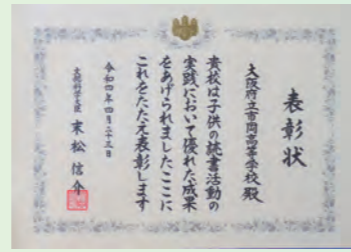 表彰状
大阪府立市岡高等学校殿
貴校は子供の読書活動の
実践において優れた成果
をあげられましたここに
これをたたえ表彰します
令和四年四月二十三日
文部科学大臣 末松信介